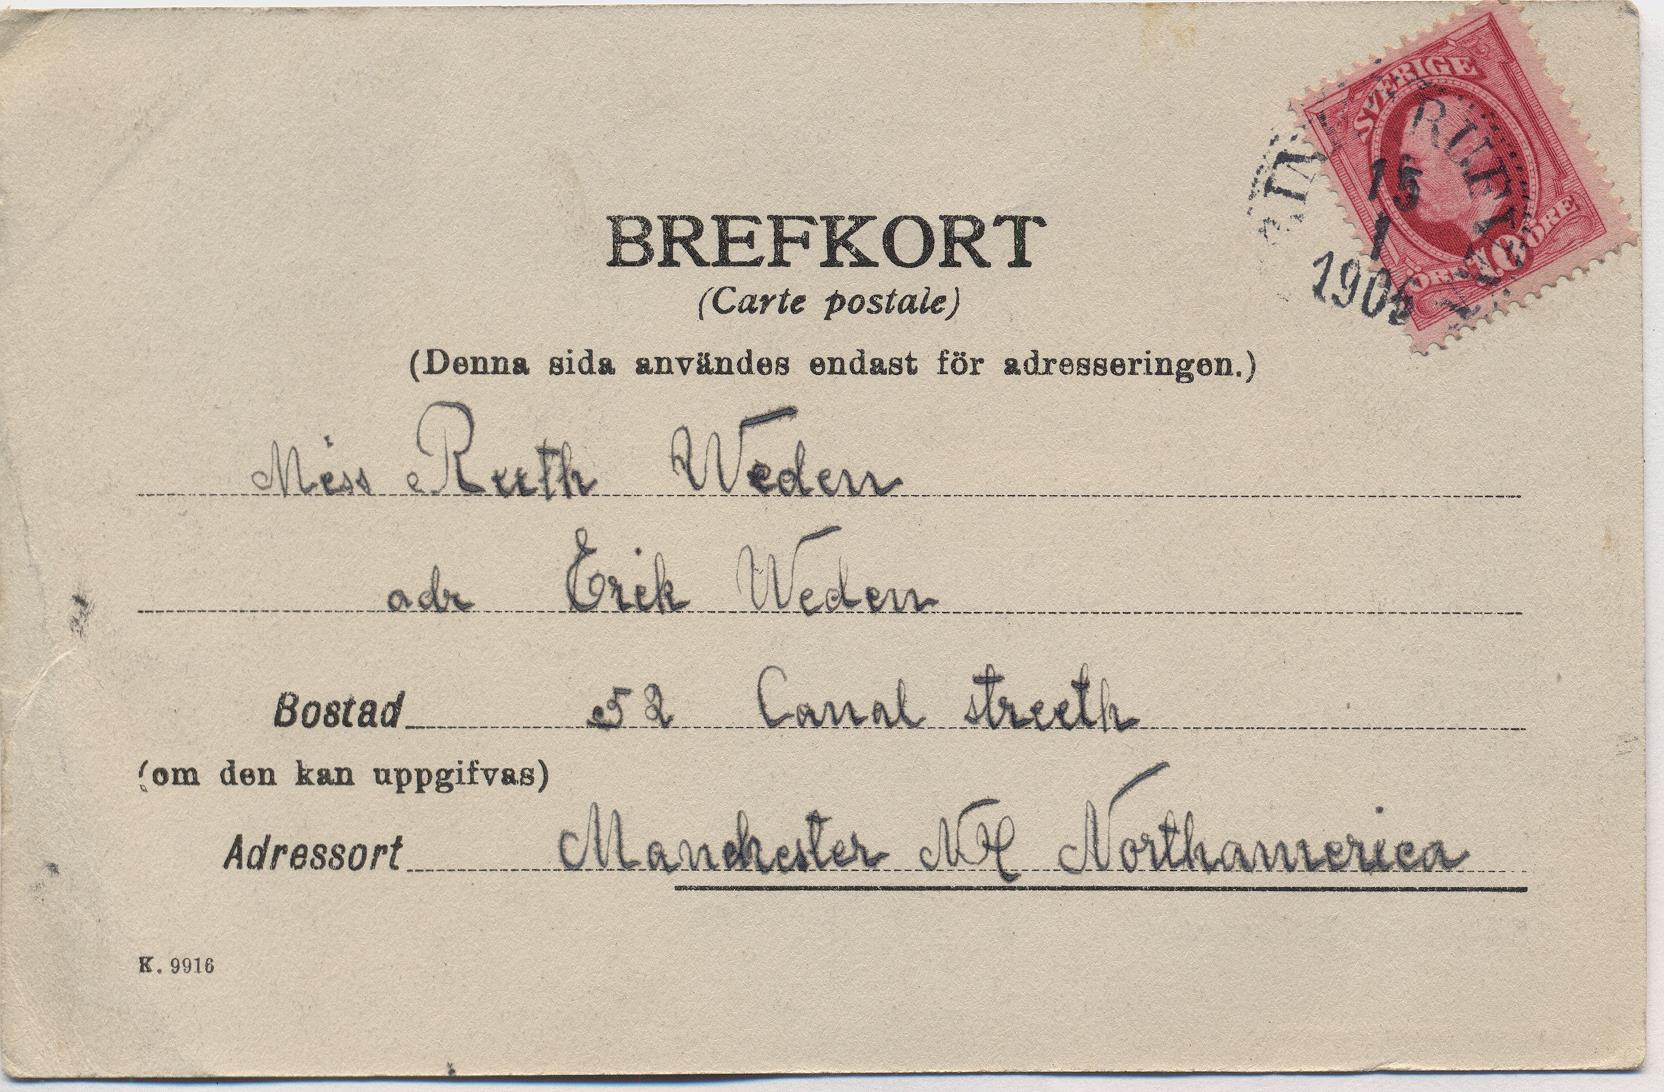 SVERIGE
10
ÖRE ÖRE
15
1
1906
BREFKORT
(Carte postale)
(Denna sida användes endast för adresseringen.)
Miss Ruth Weden
adr Erik Weden
Bostad 52 Canal streeth
(om den kan uppgifvas)
Adressort Manchester NH Northamerica
K. 9916